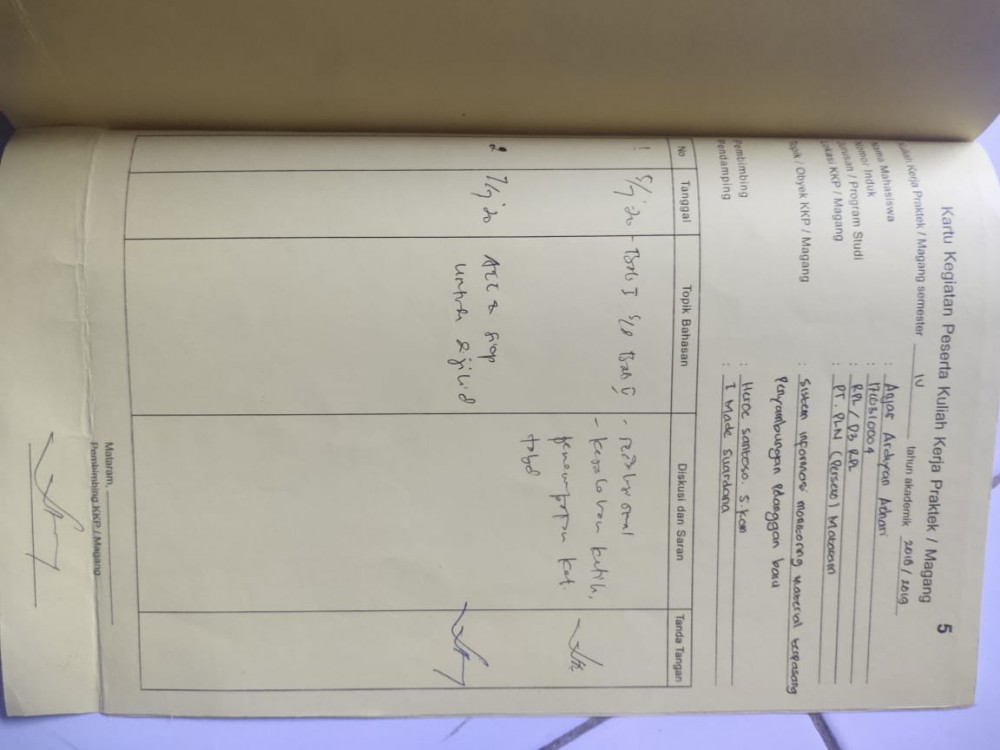 Kartu Kegiatan Peserta Kuliah Kerja Praktek / Magang 5
Kuliah Kerja Praktek / Magang semester IV tahun akademik 2018 / 2019
Nama Mahasiswa : Ardyan
Nomor Induk : 1710310004
Jurusan / Program Studi : RPL / D3 RPL
Lokasi KKP / Magang : PT. PLN (Persero) Mataram
Topik / Obyek KKP / Magang : Sistem informasi monitoring material terpasang
Penyambungan pelanggan baru
Pembimbing : Heroe Santoso. S.Kom
Pendamping : I Made Suardana
No Tanggal Topik Bahasan Diskusi dan Saran Tanda Tangan
1 5/7 '20 - Bab I s/d Bab V -
- kesalahan ketik,
penempatan ket.
tabel
2 7/7 '20 Acc & siap
untuk dijilid
Mataram,
Pembimbing KKP / Magang